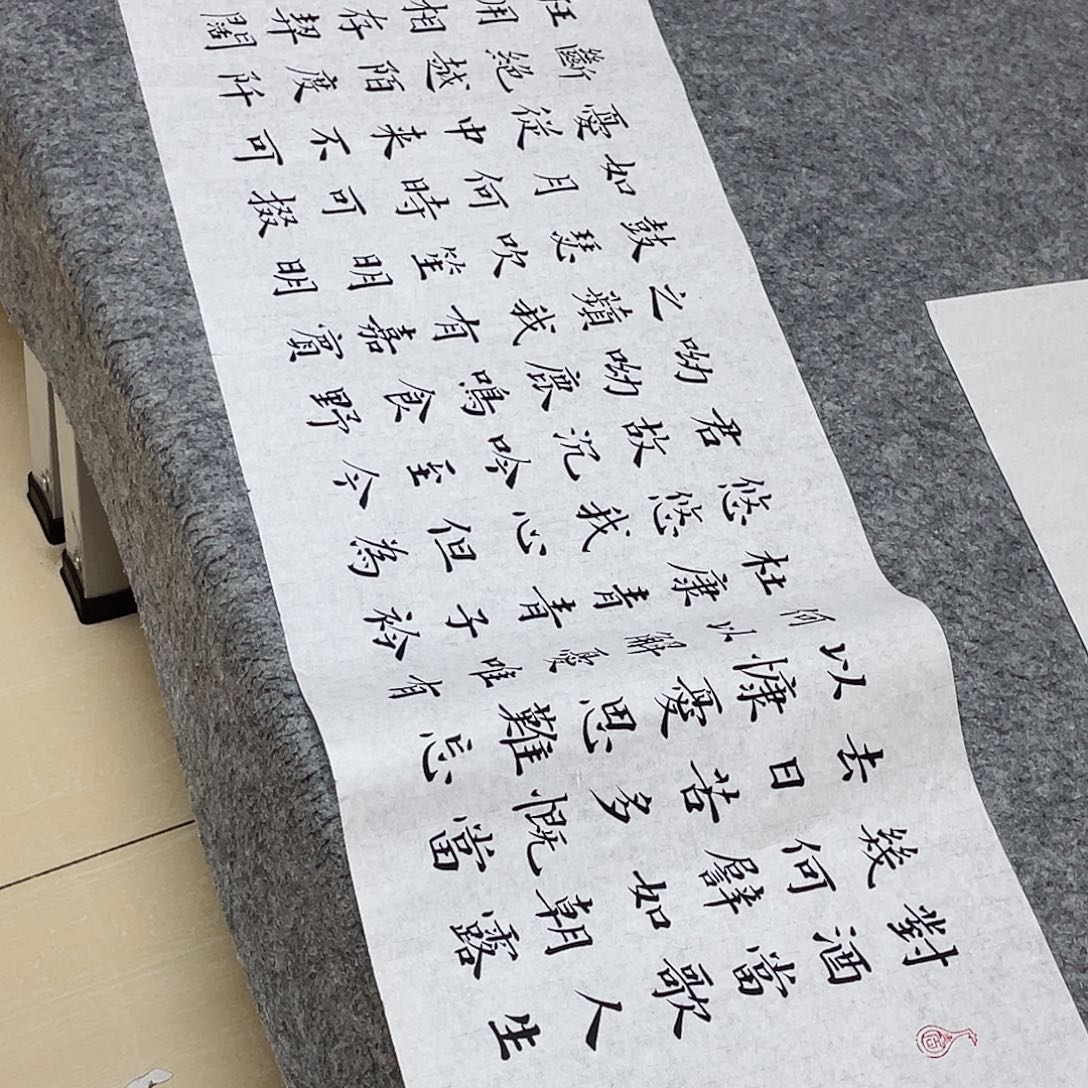 對酒當歌人生
幾何譬如朝露
去日苦多慨當
以慷憂思難忘
何以解憂唯有
杜康青青子衿
悠悠我心但為
君故沉吟至今
呦呦鹿鳴食野
之蘋我有嘉賓
鼓瑟吹笙明明
如月何時可掇
憂從中来不可
斷絕越陌度阡
枉用相存契闊